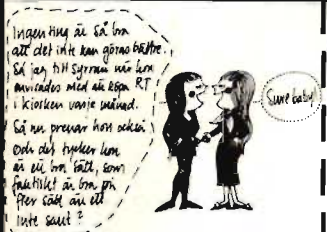 Ingenting är så bra
att det inte kan göras bättre.
Så jag till syrran när hon
envisades med att köpa RT
i kiosken varje månad.
Så nu prenar hon också
Och det tycker hon
är ett bra sätt, som
faktiskt är bra på
fler sätt än ett
Inte sant?
Sure baby!